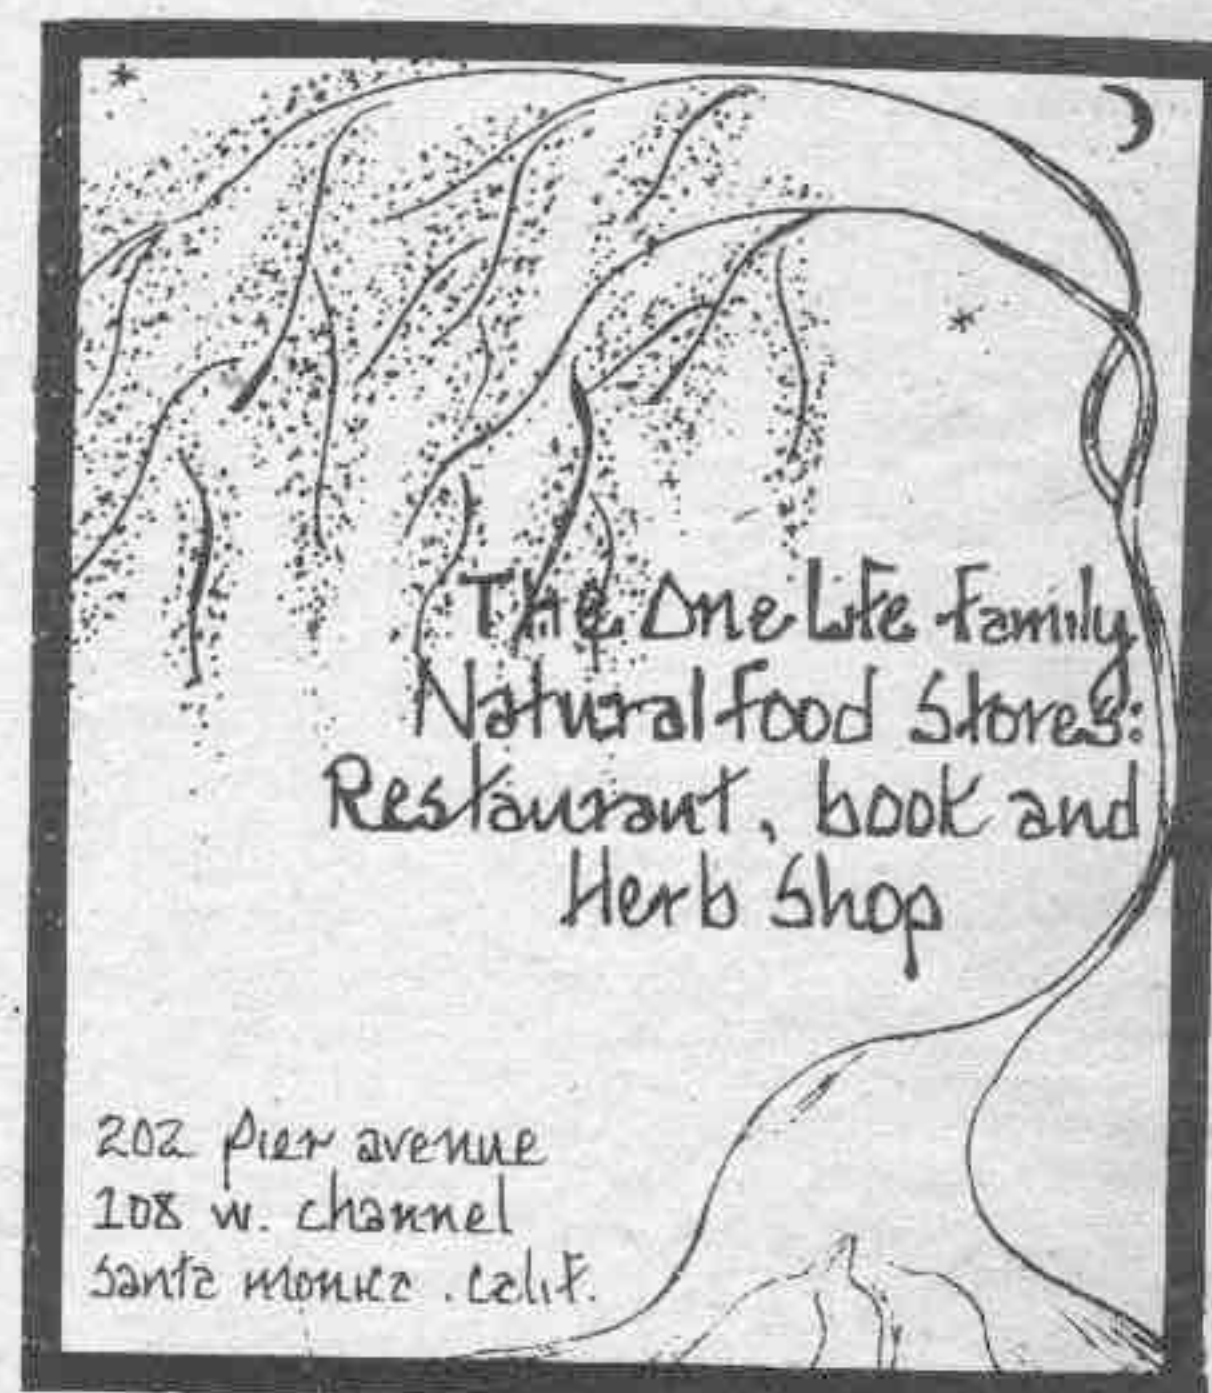 The One Life Family
Natural Food Stores:
Restaurant, book and
Herb Shop
202 pier avenue
108 w. channel
santa monica. calif.